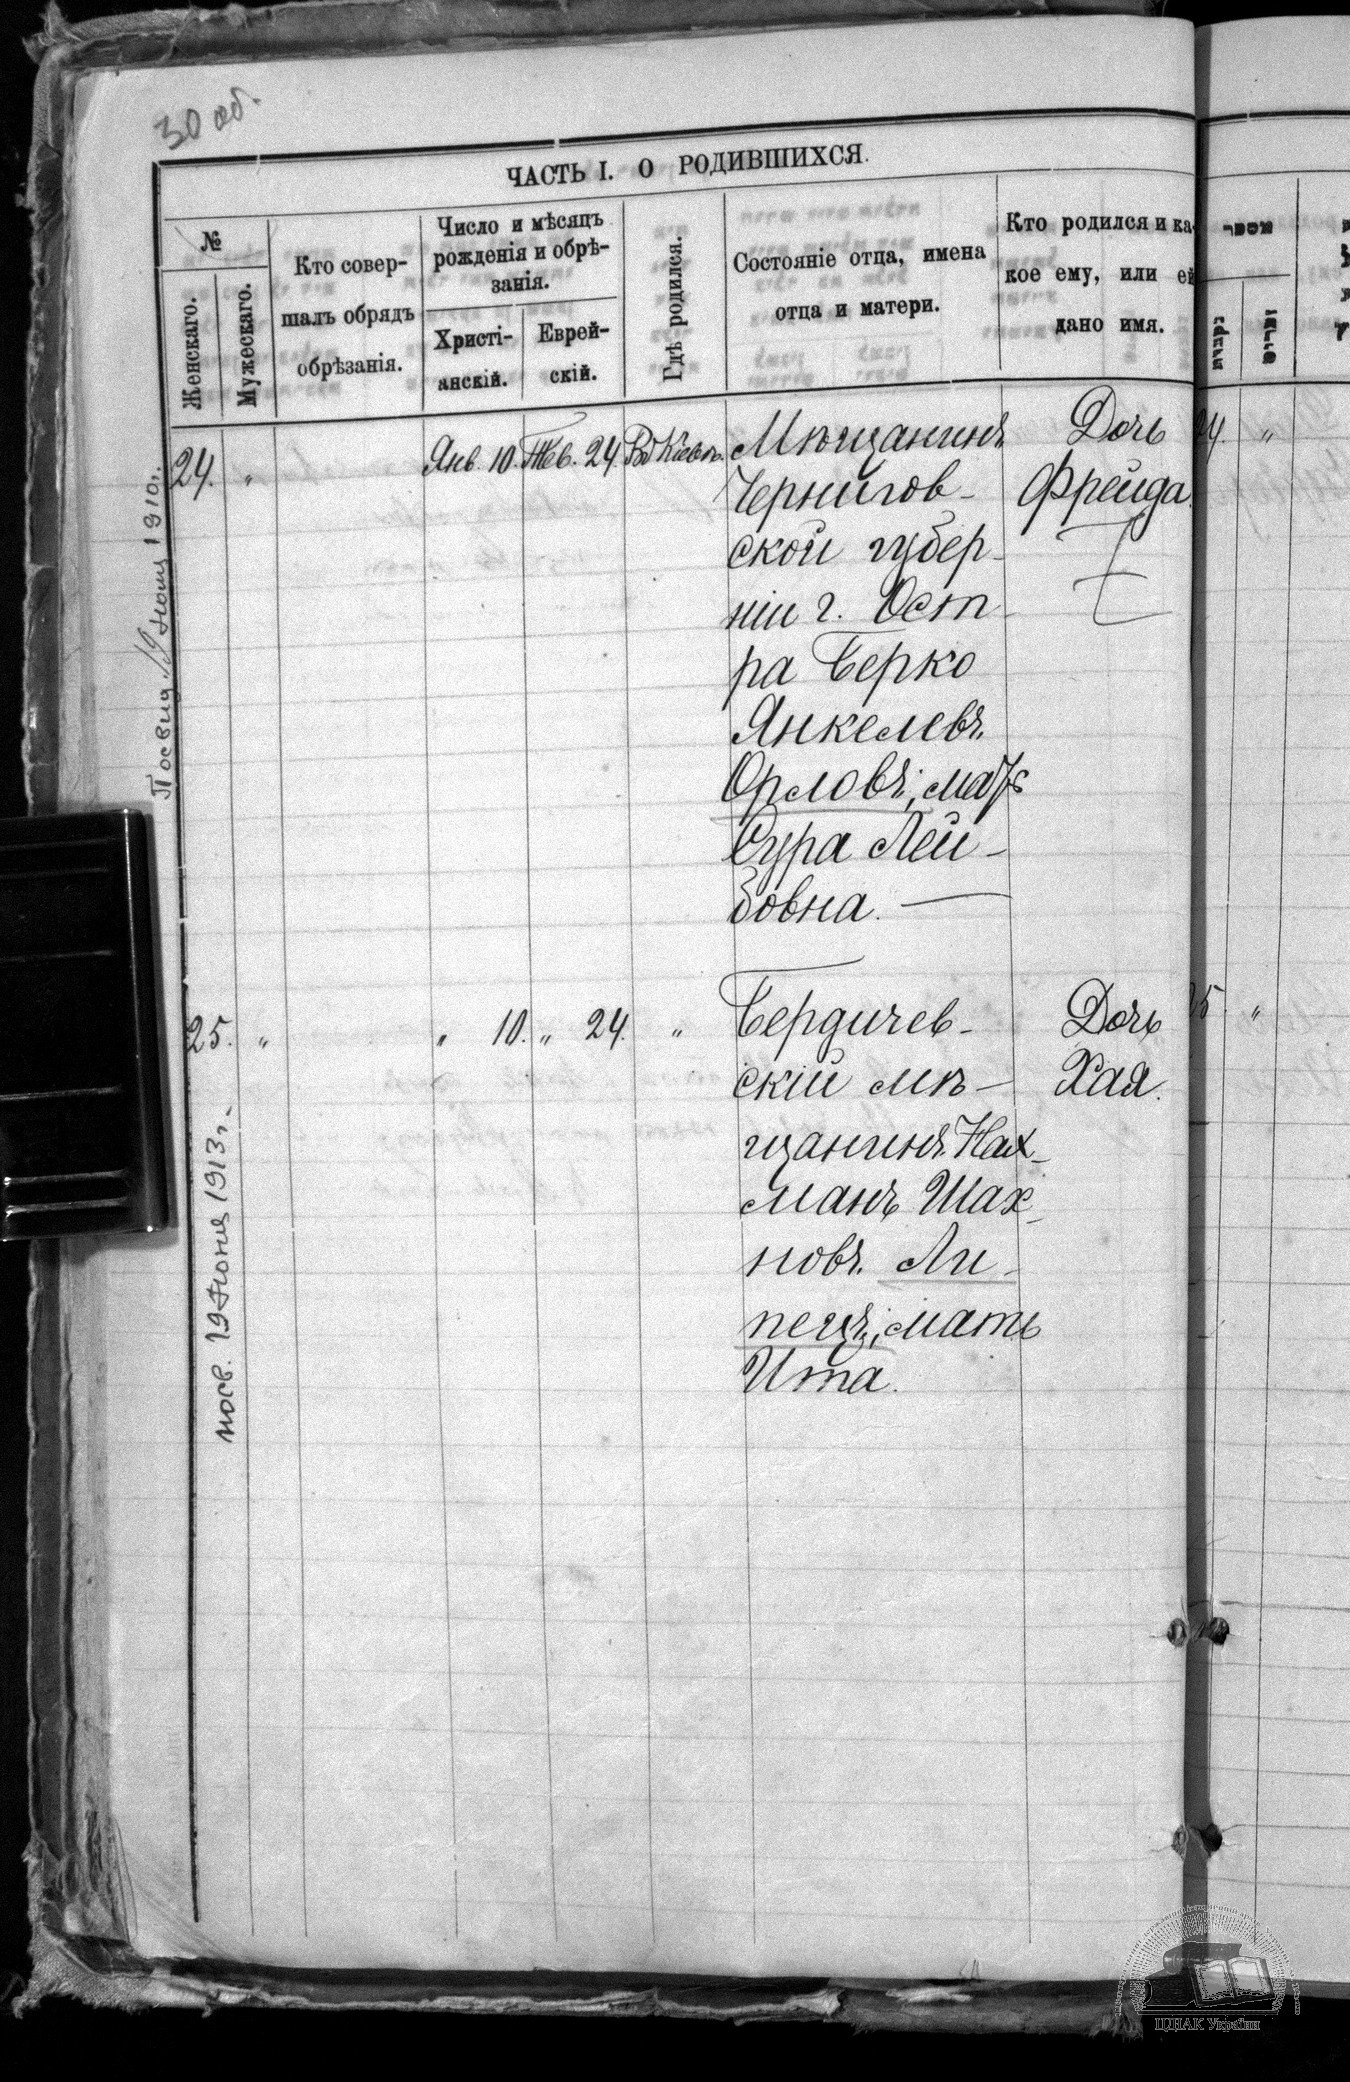 30 об.
ЧАСТЬ I. О РОДИВШИХСЯ.
№
Женскаго.
Мужескаго.
Кто совер-
шалъ обрядъ
обрѣзанія.
Число и мѣсяцъ
рожденія и обрѣ-
занія.
Христі-
анскій.
Еврей-
скій.
Гдѣ родился.
Состояніе отца, имена
отца и матери.
Кто родился и ка-
кое ему, или ей
дано имя.
24. " Янв. 10. Тев. 24. Въ Кіевѣ. Мѣщанинъ Дочь
Чернигов- Фрейда.
ской губер-
ніи г. Ост
ра Берко
Янкелевъ
Орловъ, мать
Сура Лей-
бовна.
25. " " 10. " 24. " Бердичев- Дочь
скій мѣ- Хая.
щанинъ Нах-
манъ Шах-
новъ Ли-
пецъ, мать
Ита.
1910 г.
посв. 19 Іюня 1913 г.
24. "
25. "
ЦДІАК України